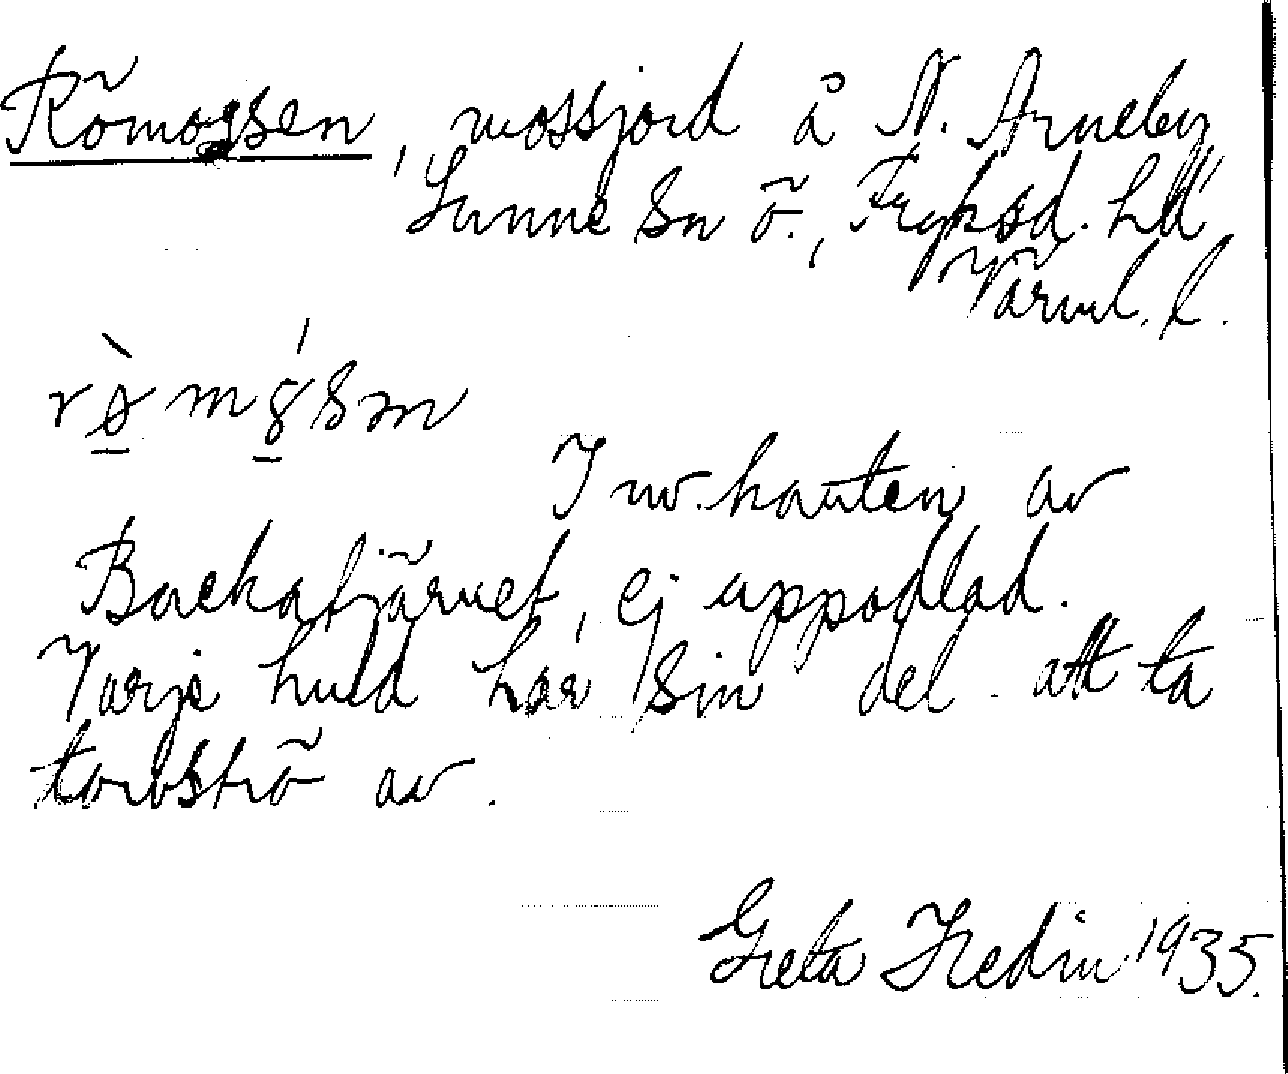 Römossen, mossjord å N. Arneby,
Sunne sn ö., Fryksd. hd,
Värml. l.
I nv. kanten av
Backatjärnet, ej uppodlad.
Varje huld har sin del att ta
torvströ av.
Greta Hedin 1935.